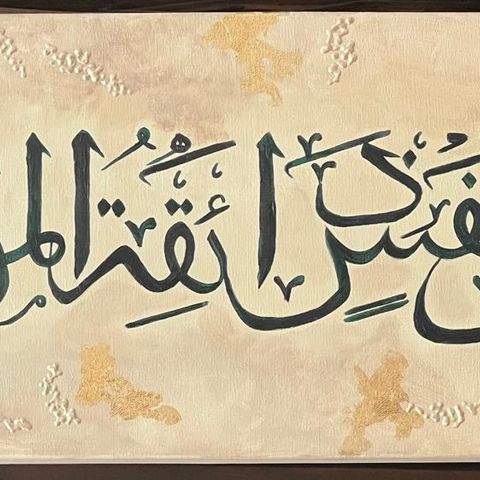 نفسٍ ذائقةُ الم